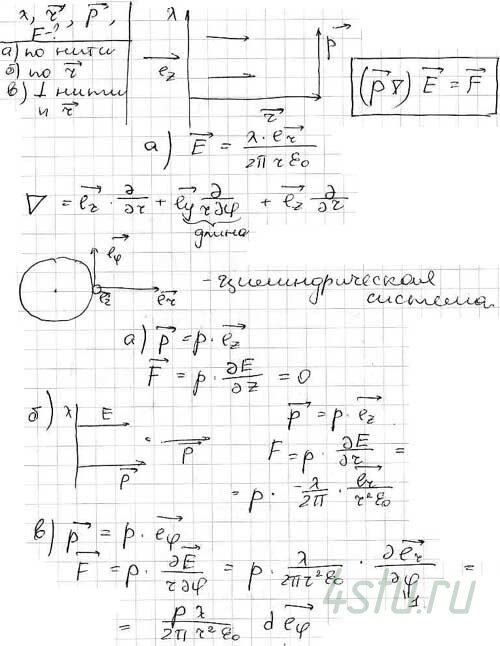 λ, r⃗, p⃗,
F-?
а) по нити
б) по r⃗
в) ⊥ нити
и r⃗
λ
e⃗z
p⃗
r⃗
(p⃗∇) E⃗ = F⃗
а) E⃗ = λ·e⃗r / 2πrε₀
∇ = e⃗r · ∂/∂r + e⃗φ ∂/r∂φ + e⃗z ∂/∂r
длина
e⃗φ
e⃗z e⃗r
- цилиндрическая
система
а) p⃗ = p · e⃗z
F⃗ = p · ∂E⃗/∂z = 0
б) λ E
p⃗
p⃗
p⃗ = p · e⃗z
F = p · ∂E⃗/∂r =
= p · -λ/2π · e⃗r/r²ε₀
в) p⃗ = p · e⃗φ
F⃗ = p · ∂E⃗/r∂φ = p · λ/2πr²ε₀ · ∂e⃗r/∂φ =
= pλ/2πr²ε₀ d e⃗φ
4stu.ru